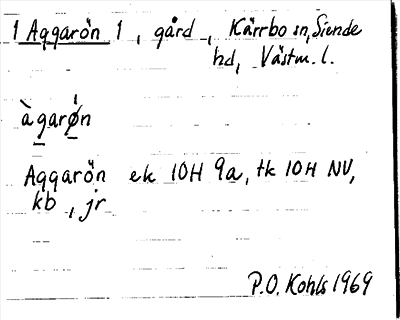 1 Aggarön 1, gård, Kärrbo sn, Siende
hd, Västm. l.
àgarø̀n
Aggarön ek 10H 9a, tk 10H NV,
kb, jr
P.O. Kohls 1969